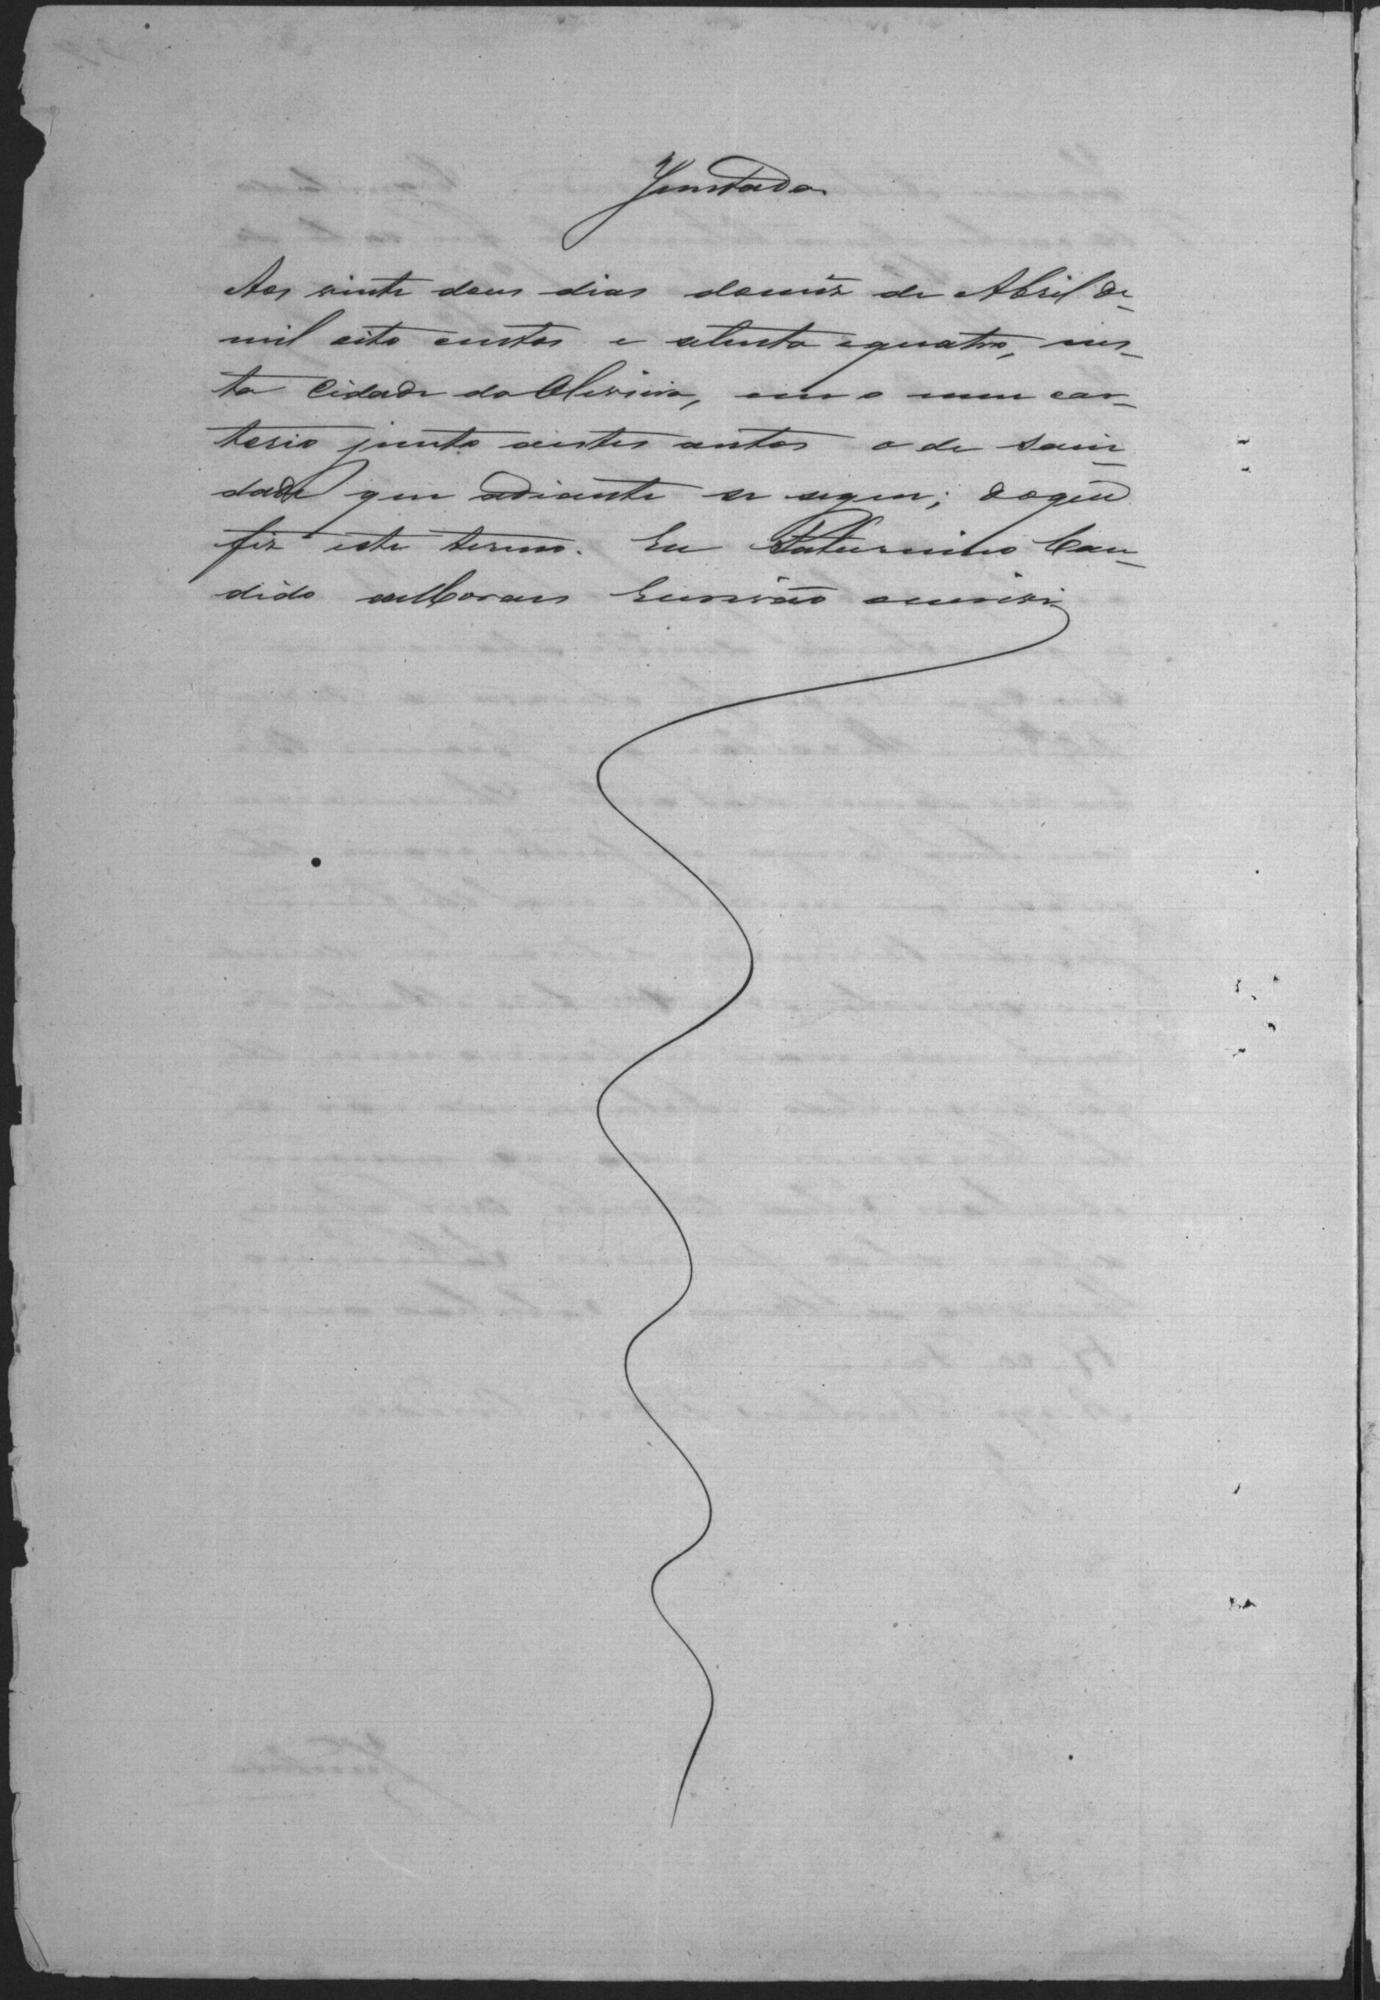 Juntada
Aos vinte dous dias do mez de Abril de
mil oito centos e setenta e quatro, nes-
ta Cidade da Oliveira, em o meu car-
torio junto a estes autos o de
que adiante se segue; do que
fiz este termo. Eu Saturnino Can-
dido de Moraes Escrivão o escrevi